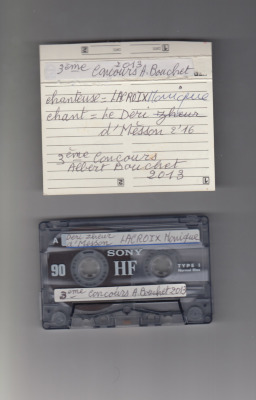 3ème Concours A. Bouchet
2013
chanteuse = LACROIX Monique
chant = Le Déri
d'Mésson 2'16
3ème Concours
Albert Bouchet
2013
A
d'Messon LACROIX Monique
SONY
90 HF TYPE I
3ème Concours A. Bouchet 2013